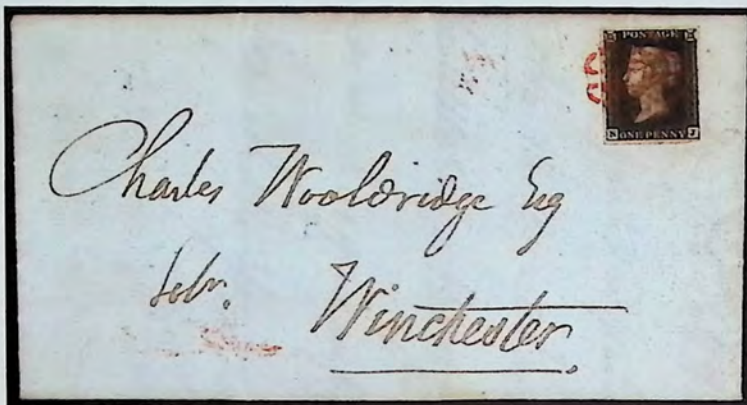 POSTAGE
N ONE PENNY J
Charles Wooldridge Esq
Solr.
Winchester.